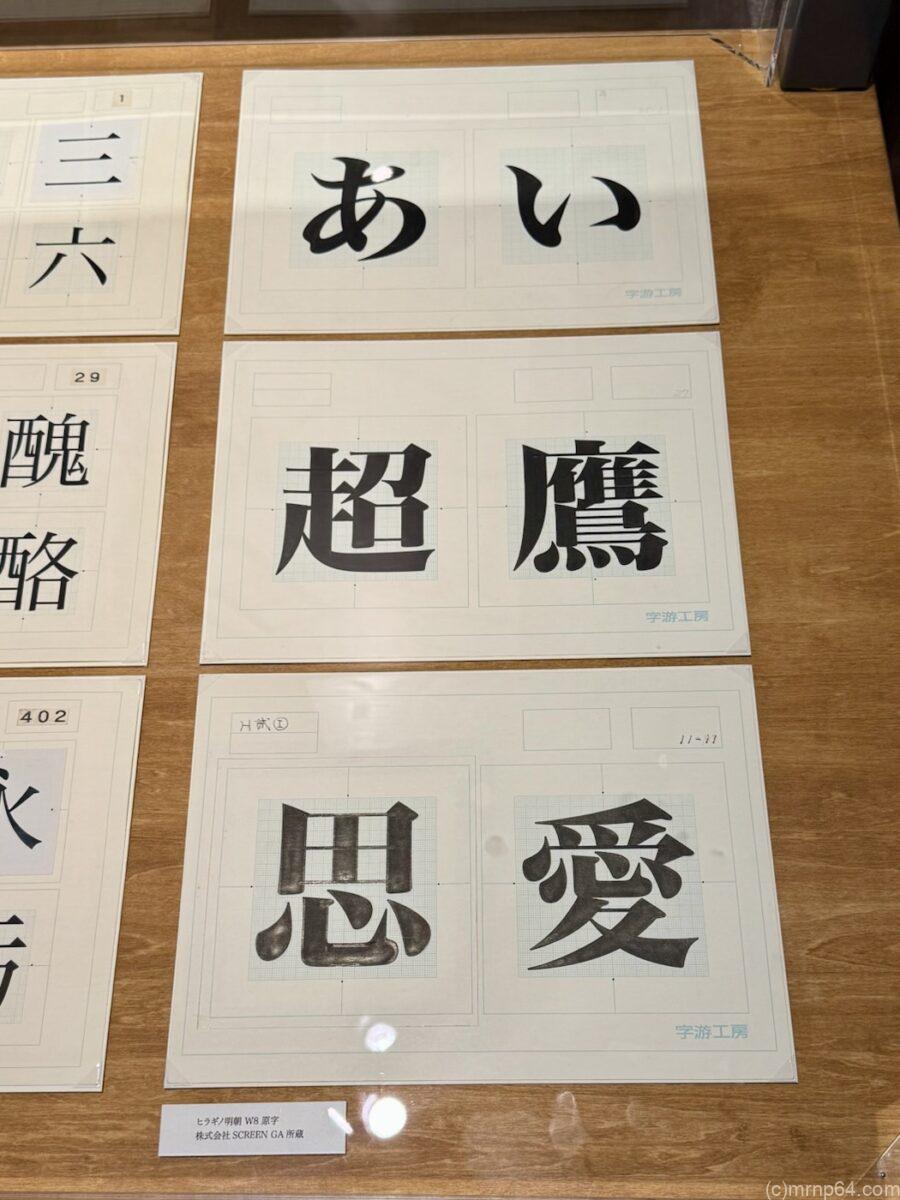 1
三
六
29
醜
酪
402
あ い
字游工房
超 鷹
27
字游工房
エ試①
11-11
思 愛
字游工房
ヒラギノ明朝 W8 原字
株式会社 SCREEN GA 所蔵
(c)mrnp64.com